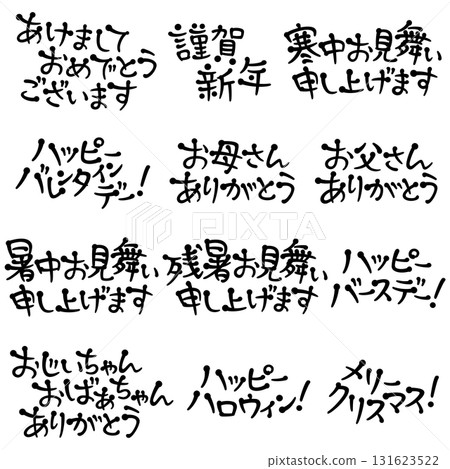 あけまして
おめでとう
ございます
謹賀
新年
寒中お見舞い
申し上げます
ハッピー
バレンタイン
デー!
お母さん
ありがとう
お父さん
ありがとう
暑中お見舞い
申し上げます
残暑お見舞い
申し上げます
ハッピー
バースデー!
おじいちゃん
おばあちゃん
ありがとう
ハッピー
ハロウィン!
メリー
クリスマス!
PIXTA
pixta.jp - 131623522